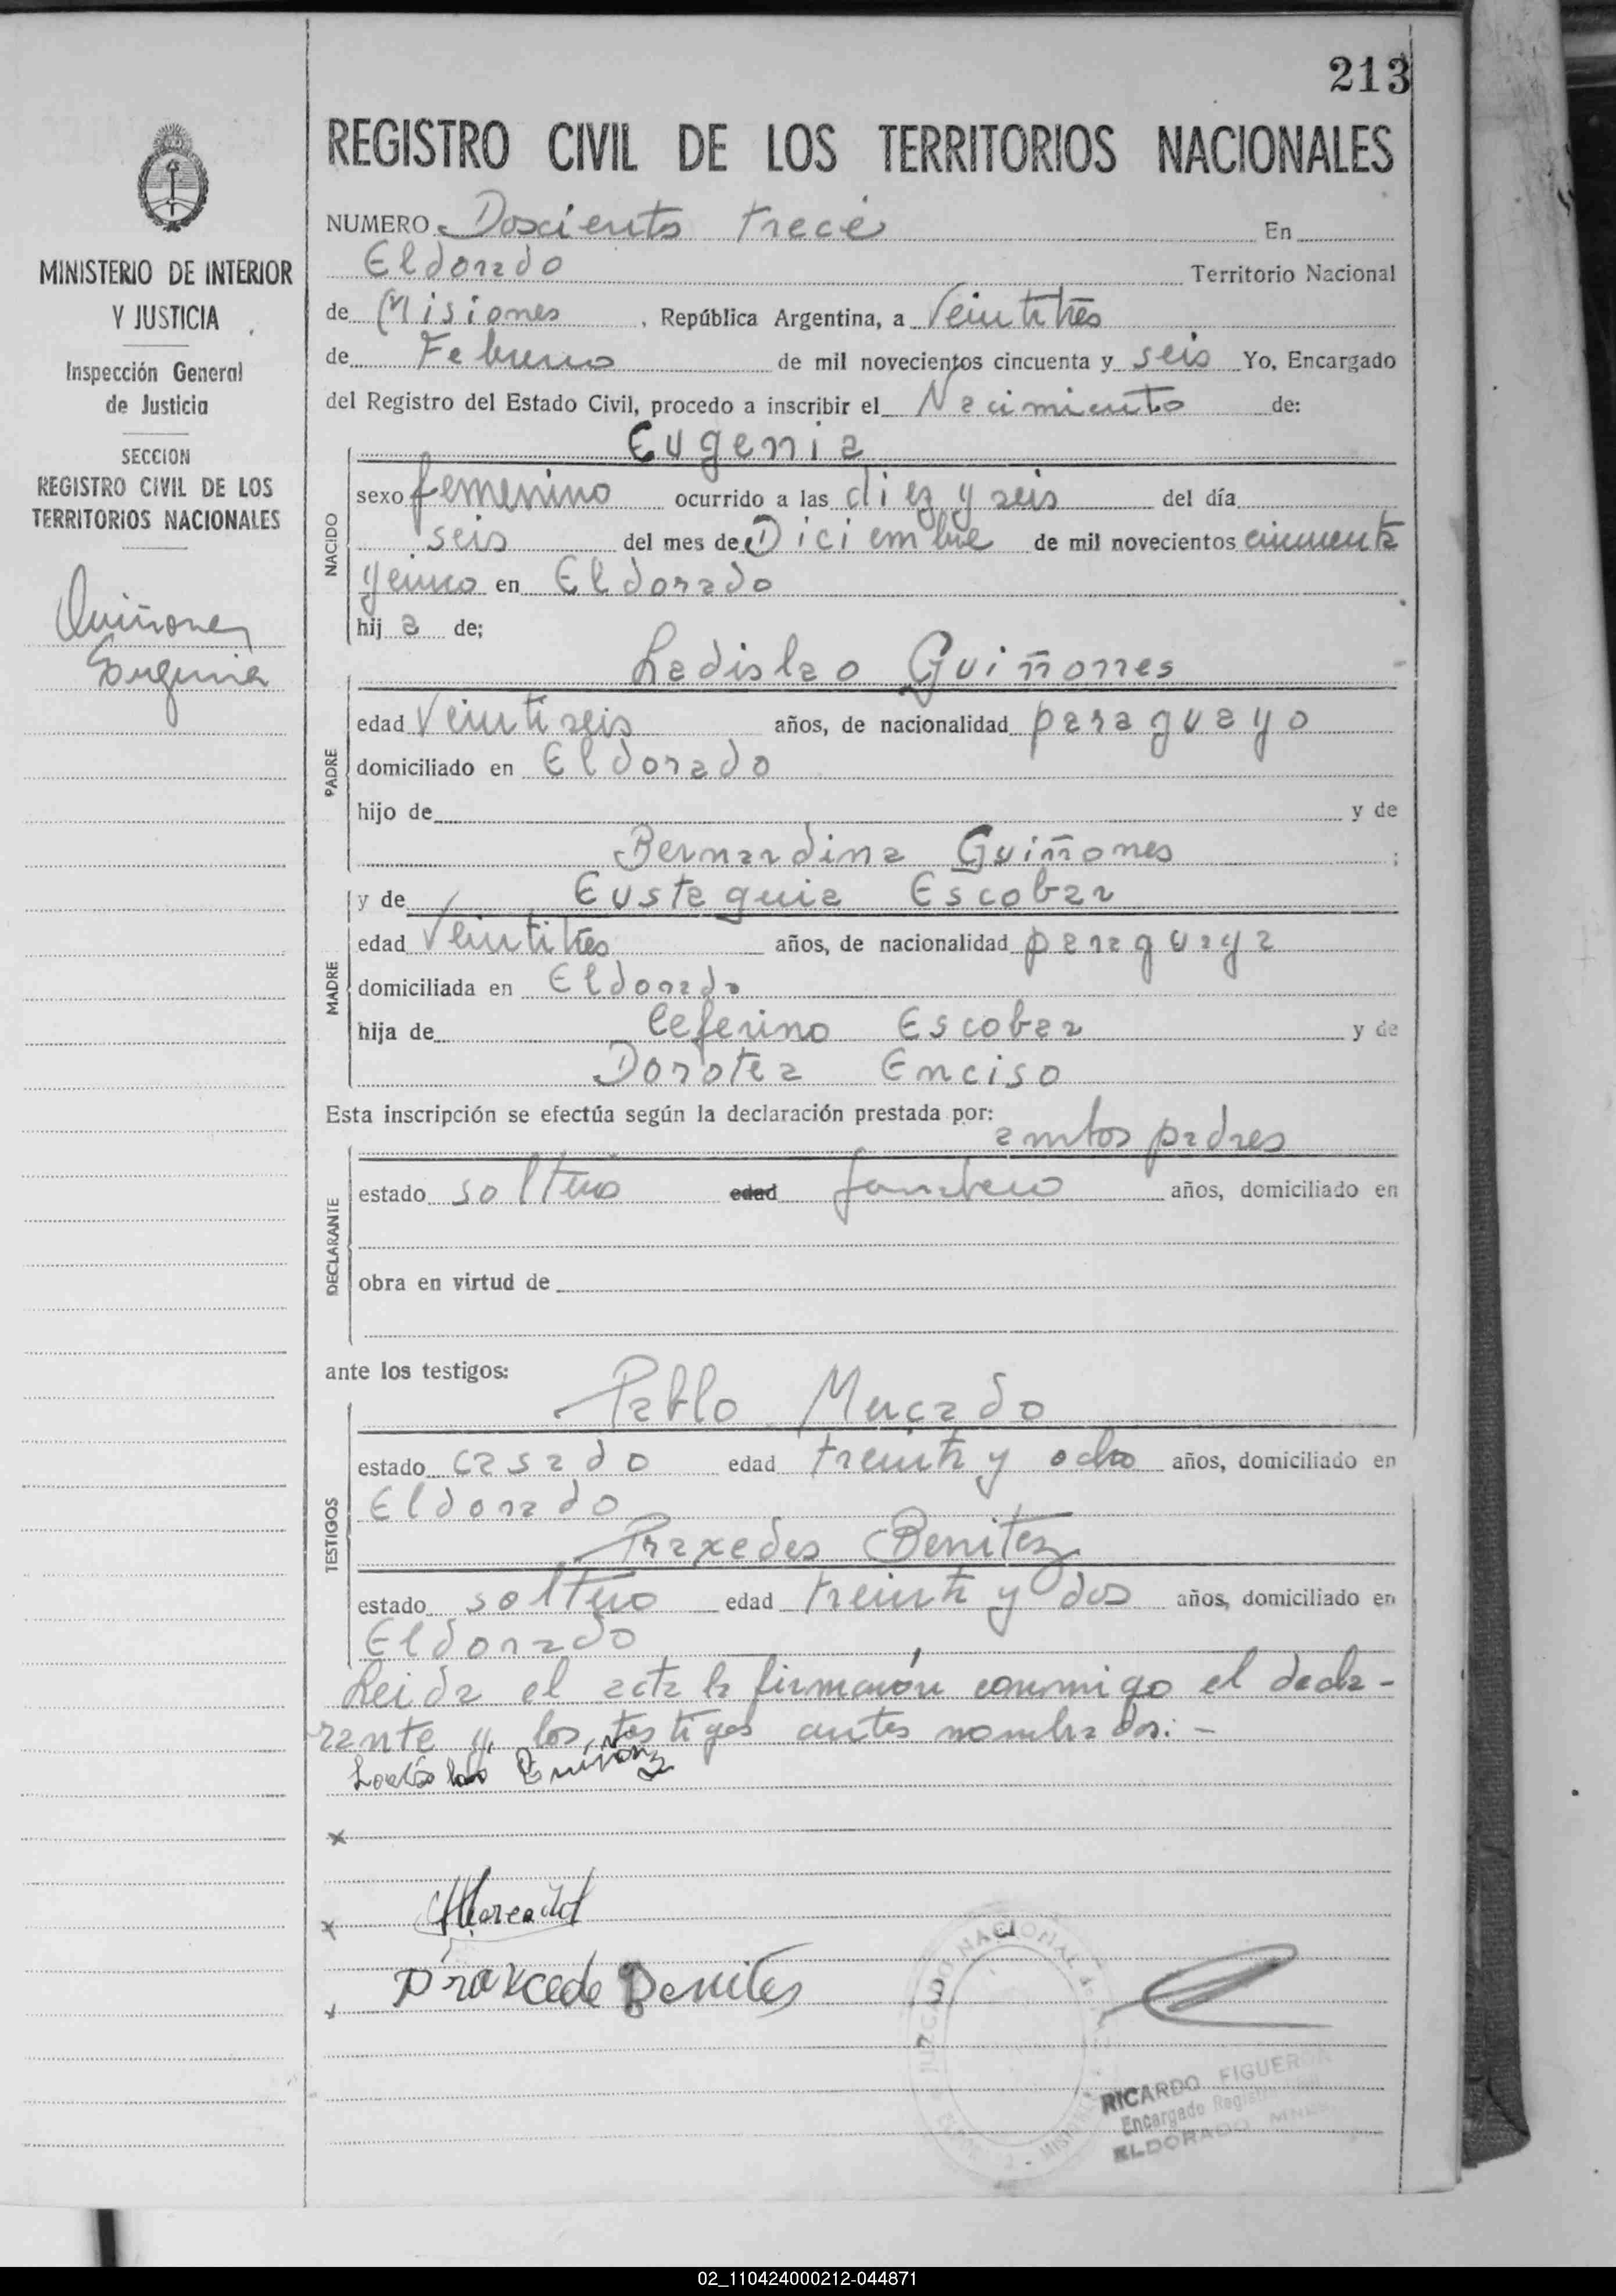 213
REGISTRO CIVIL DE LOS TERRITORIOS NACIONALES
NUMERO Doscientos trece En
Eldorado Territorio Nacional
de Misiones, República Argentina, a Veintitres
de Febrero de mil novecientos cincuenta y seis Yo, Encargado
del Registro del Estado Civil, procedo a inscribir el Nacimiento de:
MINISTERIO DE INTERIOR
Y JUSTICIA
Inspección General
de Justicia
SECCION
REGISTRO CIVIL DE LOS
TERRITORIOS NACIONALES
Quiñones
Eugenia
NACIDO
Eugenia
sexo femenino ocurrido a las diez y seis del día
seis del mes de Diciembre de mil novecientos cincuenta
y cinco en Eldorado
hij a de;
PADRE
Ladislao Guiñones
edad Veintiseis años, de nacionalidad paraguayo
domiciliado en Eldorado
hijo de y de
Bernardina Guiñones ;
MADRE
y de Eustaquia Escobar
edad Veintitres años, de nacionalidad paraguaya
domiciliada en Eldorado
hija de Ceferino Escobar y de
Dorotea Enciso
Esta inscripción se efectúa según la declaración prestada por:
ambos padres
DECLARANTE
estado soltero edad años, domiciliado en
obra en virtud de
ante los testigos:
TESTIGOS
Pablo Mercado
estado casado edad treinta y ocho años, domiciliado en
Eldorado
Praxedes Benitez
estado soltero edad treinta y dos años, domiciliado en
Eldorado
Leida el acta la firmaron conmigo el decla-
rante y los testigos antes nombrados.-
x
x
x Praxcede Benites
RICARDO FIGUERO
Encargado Registro Civil
ELDORADO MNES
02_110424000212-044871